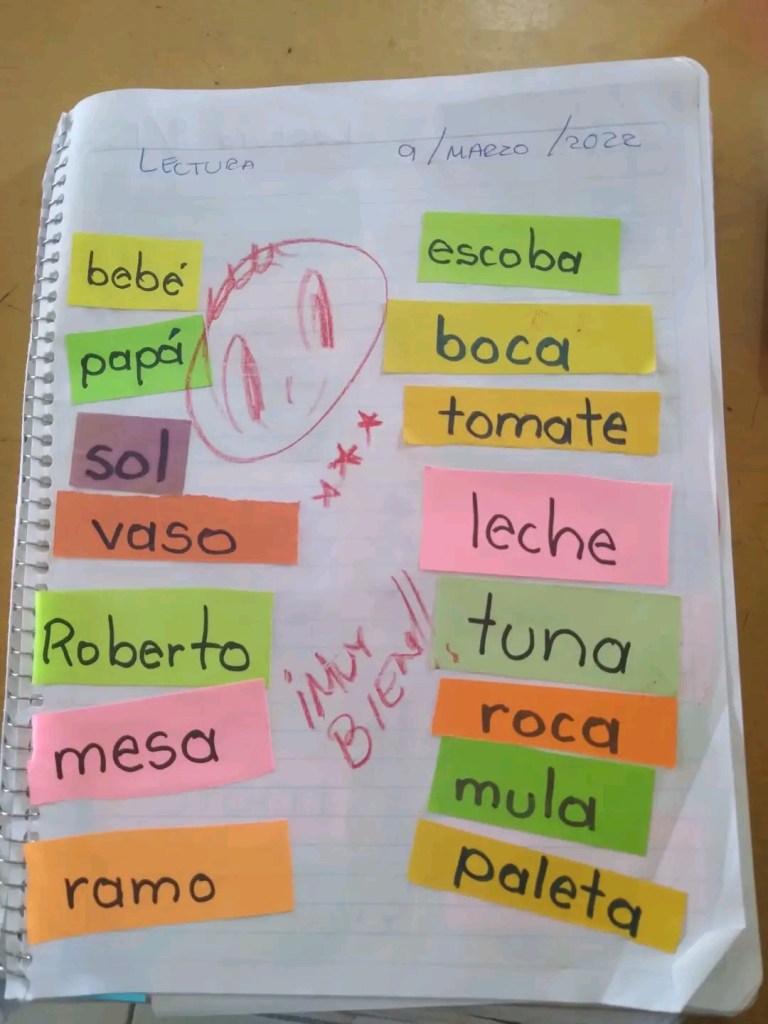 LECTURA 9/MARZO/2022
bebé
papá
sol
vaso
Roberto
mesa
ramo
¡MUY
BIEN!!
escoba
boca
tomate
leche
tuna
roca
mula
paleta